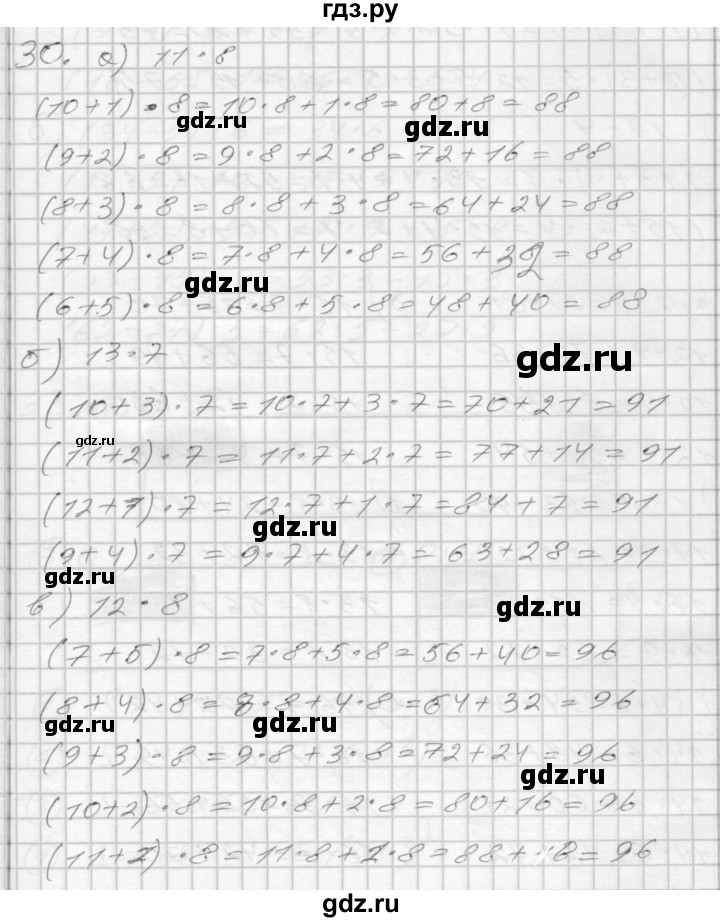 гдз.ру
30. а) 11 · 8
(10+1) · 8 = 10 · 8 + 1 · 8 = 80 + 8 = 88
gdz.ru
gdz.ru
(9+2) · 8 = 9 · 8 + 2 · 8 = 72 + 16 = 88
(8+3) · 8 = 8 · 8 + 3 · 8 = 64 + 24 = 88
(7+4) · 8 = 7 · 8 + 4 · 8 = 56 + 32 = 88
gdz.ru
(6+5) · 8 = 6 · 8 + 5 · 8 = 48 + 40 = 88
б) 13 · 7
gdz.ru
(10+3) · 7 = 10 · 7 + 3 · 7 = 70 + 21 = 91
gdz.ru
(11+2) · 7 = 11 · 7 + 2 · 7 = 77 + 14 = 91
(12+1) · 7 = 12 · 7 + 1 · 7 = 84 + 7 = 91
gdz.ru
(9+4) · 7 = 9 · 7 + 4 · 7 = 63 + 28 = 91
gdz.ru
в) 12 · 8
gdz.ru
(7+5) · 8 = 7 · 8 + 5 · 8 = 56 + 40 = 96
(8+4) · 8 = 8 · 8 + 4 · 8 = 64 + 32 = 96
gdz.ru
gdz.ru
(9+3) · 8 = 9 · 8 + 3 · 8 = 72 + 24 = 96
gdz.ru
(10+2) · 8 = 10 · 8 + 2 · 8 = 80 + 16 = 96
(11+1) · 8 = 11 · 8 + 1 · 8 = 88 + 8 = 96
gdz.ru